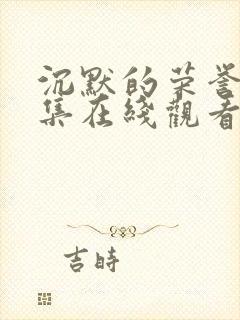 沉默的荣誉
集在綫觀看
吉時